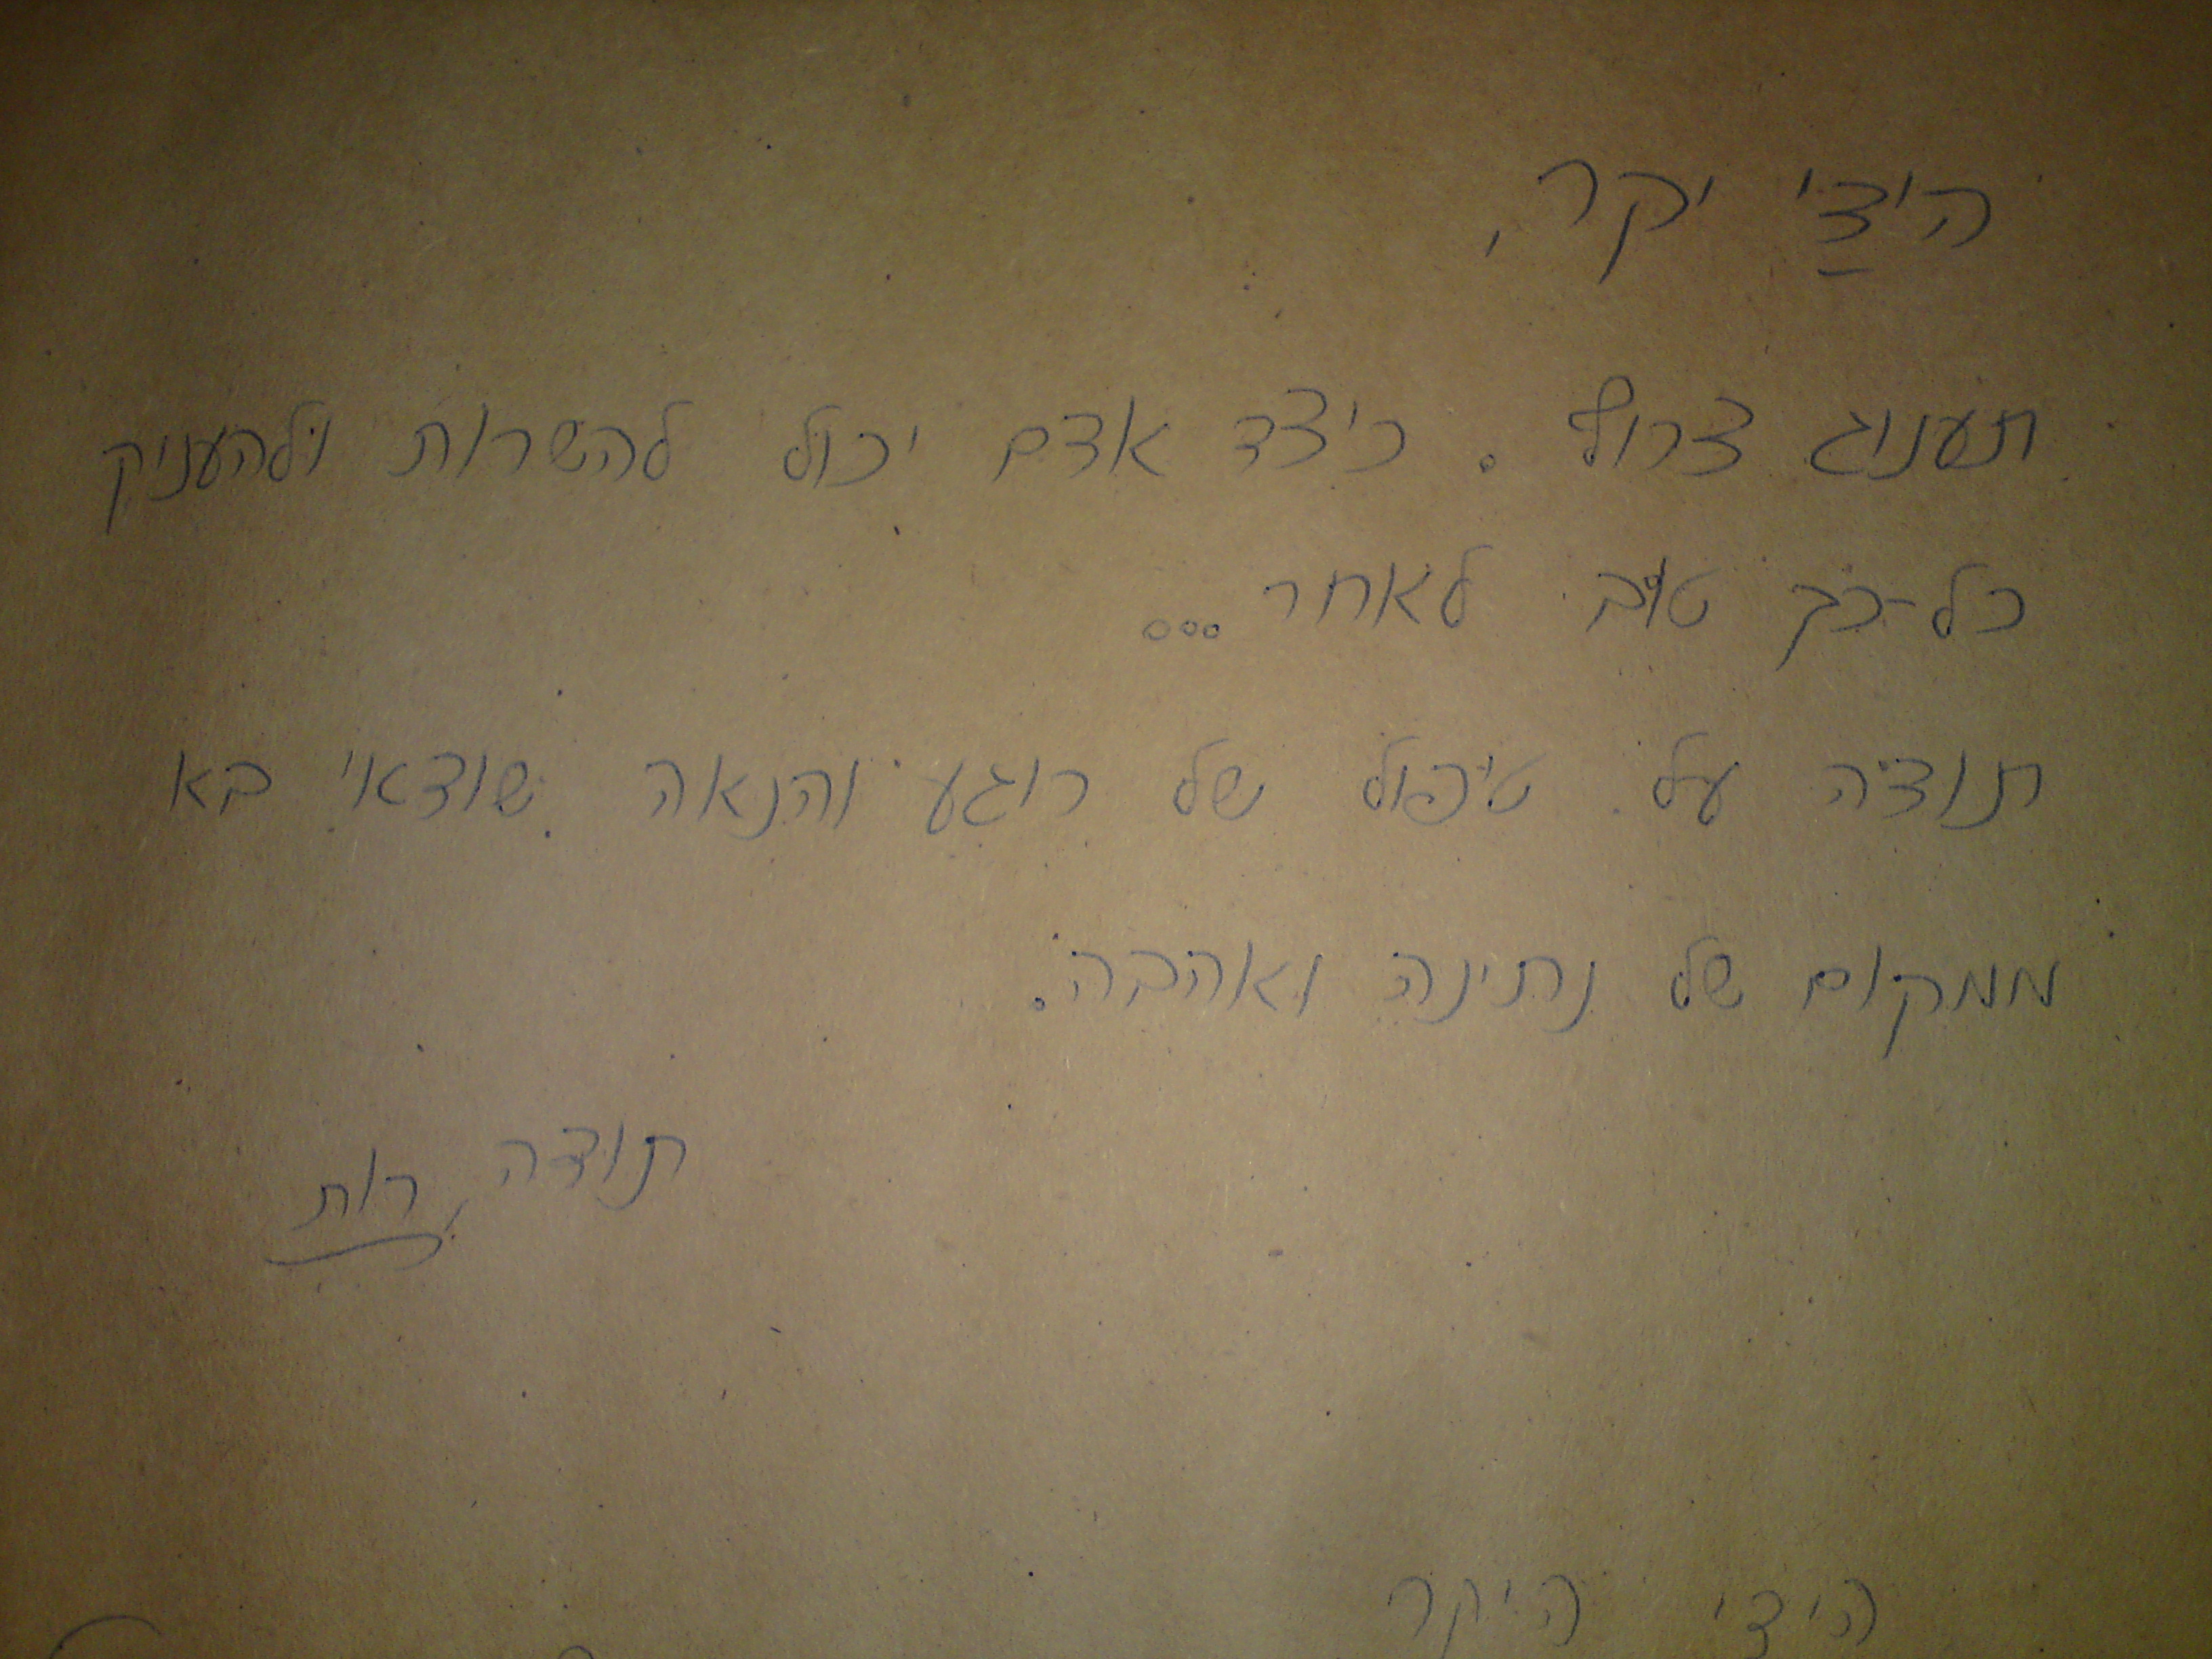 הידי יקר,
תענוג צרוף. כיצד אדם יכול להשרות ולהעניק
כל-כך טוב לאחר...
תודה על טיפול של רוגע והנאה שודאי בא
ממקום של נתינה ואהבה.
תודה, רות
הידי היקר